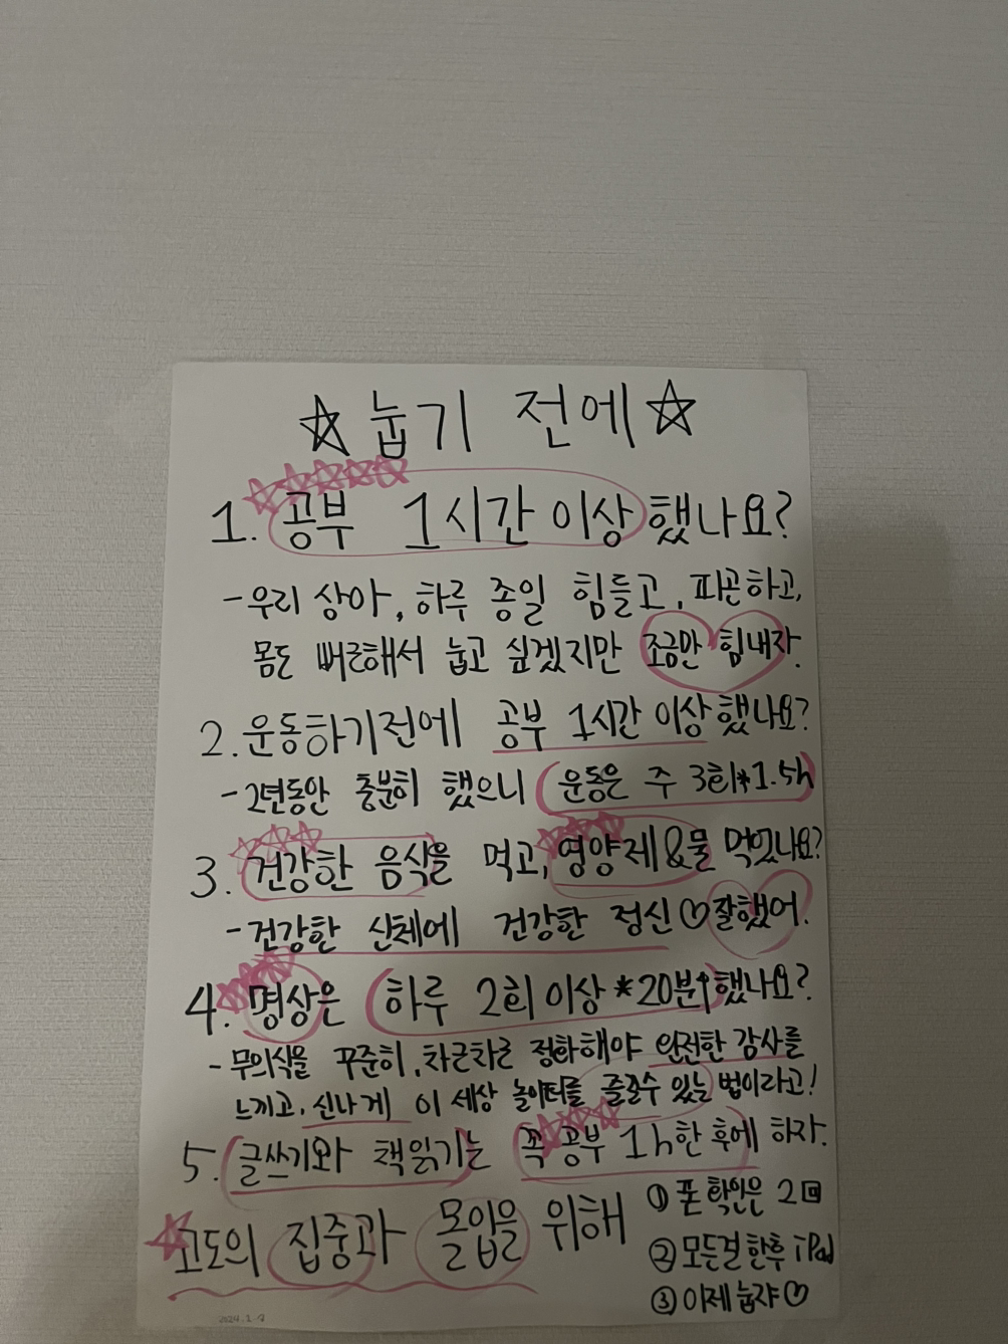 ☆눕기 전에☆
1. 공부 1시간 이상 했나요?
- 우리 상아, 하루 종일 힘들고, 피곤하고,
몸도 뻐근해서 눕고 싶겠지만 조금만 힘내자.
2. 운동하기전에 공부 1시간 이상 했나요?
- 2년동안 충분히 했으니 (운동은 주 3회*1.5h)
3. 건강한 음식을 먹고, 영양제&물 먹었나요?
- 건강한 신체에 건강한 정신♡잘했어.
4. 명상은 (하루 2회 이상*20분↑)했나요?
- 무의식을 꾸준히, 차근차근 정화해야 완전한 감사를
느끼고, 신나게 이 세상 놀이터를 즐길수 있는 법이라고!
5. (글쓰기와 책읽기)는 꼭 공부 1h한 후에 하자.
고도의 집중과 몰입을 위해
① 폰 확인은 2回
② 모든걸 한후 iPad
③ 이제 눕쟈♡